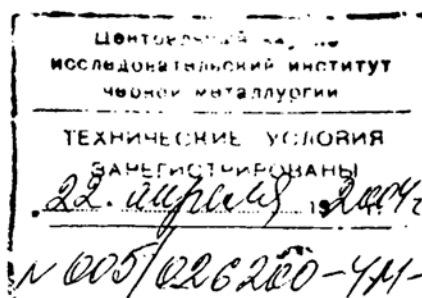 Центральный научно
исследовательский институт
черной металлургии
ТЕХНИЧЕСКИЕ УСЛОВИЯ
ЗАРЕГИСТРИРОВАНЫ
22. апреля 192004г
№ 005/026200-ЧМ-